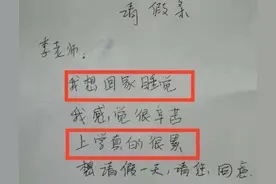 请假条
李老师：
我想回家睡觉
我感觉很辛苦
上学真的很累
想请假一天，请您同意